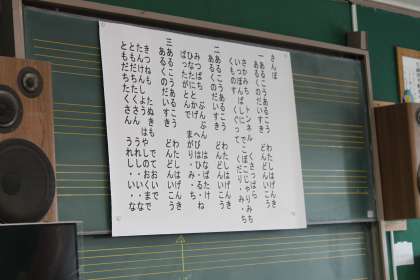 さんぽ
一 あるこうあるこう わたしはげんき
あるくのだいすき どんどんいこう
さかみち トンネル くさっぱら
いっぽんばしに でこぼこじゃりみち
くものすくぐって くだり・み・ち
二 あるこうあるこう わたしはげんき
あるくのだいすき どんどんいこう
みつばち ぶんぶん はなばたけ
ひなたにとかげ へびはひ・る・ね
ばったがとんで まがり・み・ち
三 あるこうあるこう わたしはげんき
あるくのだいすき どんどんいこう
きつねも たぬきも でておいで
たんけんしよう はやしのおくまで
ともだちたくさん うれし・い・な
ともだちたくさん うれし・い・な